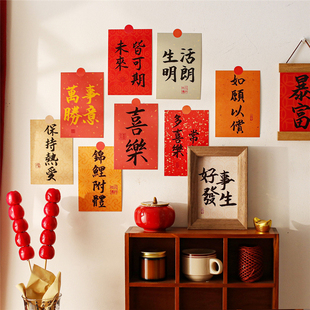 未來
皆可期
生活
明朗
萬事
勝意
喜樂
常
多喜樂
如願以償
暴富
保持熱愛
錦鯉附體
好事
發生